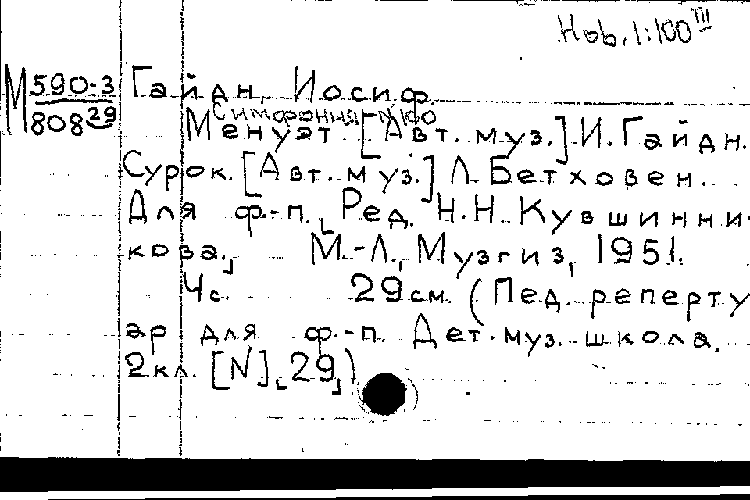 Hob. I:100 III
М 590-3 Гайдн, Иосиф.
808 29 Симфония №100
Менуэт [Авт. муз.] И. Гайдн.
Сурок. [Авт. муз.] Л. Бетховен.
Для ф.-п. Ред. Н.Н. Кувшинни-
кова. М.-Л., Музгиз, 1951.
4 с. 29 см. (Пед. реперту
ар для ф.-п. Дет. муз. школа.
2 кл. [N] 29)